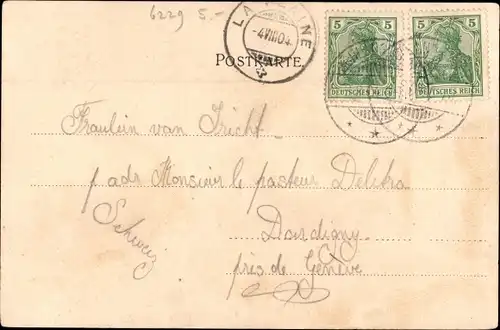 6229 5.-
LA PLAINE
-4VIII04
POSTKARTE.
5 5 5 5
DEUTSCHES REICH DEUTSCHES REICH
Fräulein van
p adr Monsieur le pasteur
Schweiz
Dardigny
près de Genève